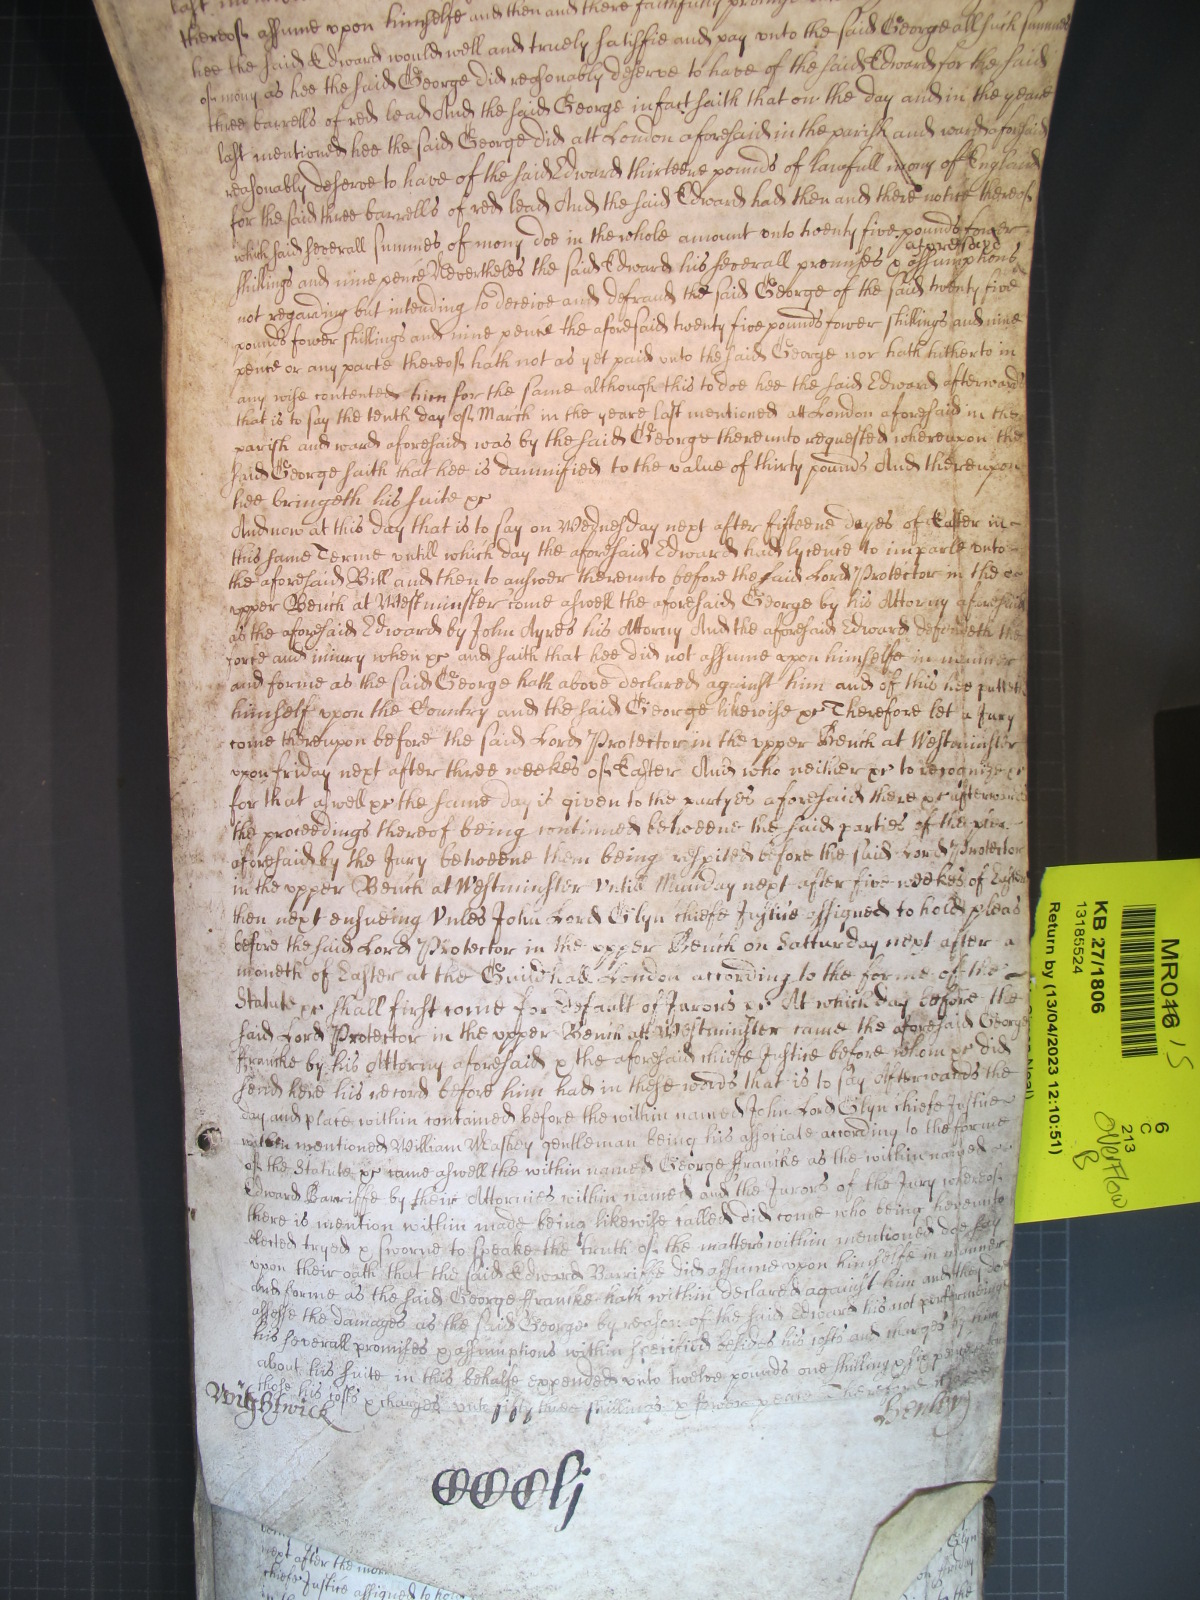 thereof assume upon himselfe and then and there faithfully promise
hee the said Edward would well and truely satisfie and pay unto the said George all such summes
of mony as hee the said George did reasonably deserve to have of the said Edward for the said
three barrells of red lead And the said George infact saith that on the day and in the yeare
last mentioned hee the said George did att London aforesaid in the parish and ward aforesaid
reasonably deserve to have of the said Edward thirteene pounds of lawfull mony of England
for the said three barrells of red lead And the said Edward had then and there notice thereof
which said severall summes of mony doe in the whole amount unto twenty five pounds fower
aforesaid
shillings and nine pence Nevertheles the said Edward his severall promises & assumptions
not regarding but intending to deceive and defraud the said George of the said twenty five
pounds fower shillings and nine pence the aforesaid twenty five pounds fower shillings and nine
pence or any parte thereof hath not as yet paid unto the said George nor hath hitherto in
any wise contented him for the same although this to doe hee the said Edward afterwards
that is to say the tenth day of March in the yeare last mentioned att London aforesaid in the
parish and ward aforesaid was by the said George thereunto requested whereupon the
said George saith that hee is damnified to the value of thirty pounds And thereupon
hee bringeth his suite &c
And now at this day that is to say on Wednesday next after fifteene dayes of Easter in
this same Terme untill which day the aforesaid Edward had lycence to imparle unto
the aforesaid Bill and then to answer thereunto before the said Lord Protector in the
upper Bench at Westminster come aswell the aforesaid George by his Attorny aforesaid
as the aforesaid Edward by John Ayres his Attorny And the aforesaid Edward defendeth the
force and iniury when &c and saith that hee did not assume upon himselfe in manner
and forme as the said George hath above declared against him and of this hee putteth
himself upon the Country and the said George likewise &c Therefore let a Jury
come thereupon before the said Lord Protector in the upper Bench at Westminster
upon friday next after three weekes of Easter And who neither &c to recognize &c
for that aswell &c the same day is given to the partyes aforesaid there &c afterwards
the proceedings thereof being continued betweene the said parties of the plea
aforesaid by the Jury betweene them being respited before the said Lord Protector
in the upper Bench at Westminster untill Munday next after five weekes of Easter
then next ensueing Unles John Lord Glyn chiefe Justice assigned to hold pleas
before the said Lord Protector in the upper Bench on Satturday next after a
moneth of Easter at the Guildhall London according to the forme of the
Statute &c shall first come for default of Jurors &c At which day before the
said Lord Protector in the upper Bench att Westminster came the aforesaid George
ffrancke by his Attorny aforesaid & the aforesaid chiefe Justice before whom &c did
send here his record before him had in these words that is to say Afterwards the
day and place within contained before the within named John Lord Glyn chiefe Justice
within mentioned William Maskey gentleman being his associate according to the forme
of the Statute &c came aswell the within named George ffrancke as the within named
Edward Barriffe by their Attornies within named and the Jurors of the Jury whereof
there is mention within made being likewise called did come who being hereunto
elected tryed & sworne to speake the truth of the matters within mentioned doe say
upon their oath that the said Edward Barriffe did assume upon himselfe in manner
and forme as the said George ffrancke hath within declared against him and they doe
assesse the damages as the said George by reason of the said Edward his not performeing
his severall promises & assumptions within specified besides his costs and charges by him
about his suite in this behalfe expended unto twelve pounds one shilling & six pence
those his costs & charges unto fifty three shillings & fower pence Therefore
Wightwick
CCClj
next after the
chiefe Justice assigned to hold
Glyn
on friday
the
MR046
15
KB 27/1806
13185524
Return by (13/04/2023 12:10:51)
6
C
213
Overflow
B